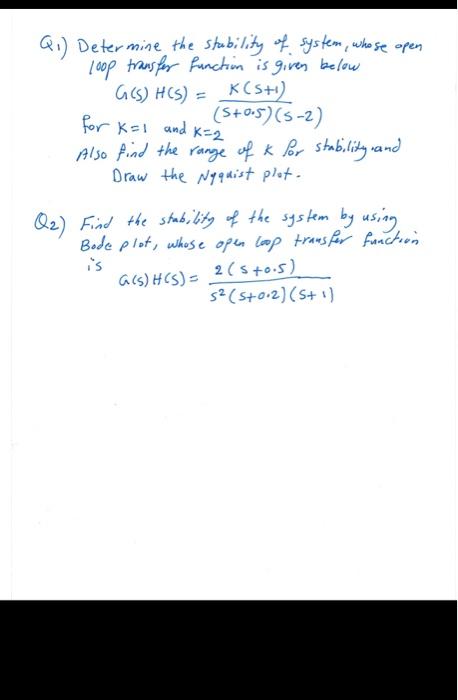 Q1) Determine the stability of system, whose open
loop transfer function is given below
G(s) H(s) = K(s+1) / (s+0.5)(s-2)
for K=1 and K=2
Also find the range of K for stability and
Draw the Nyquist plot.
Q2) Find the stability of the system by using
Bode plot, whose open loop transfer function
is
G(s) H(s) = 2(s+0.5) / s²(s+0.2)(s+1)